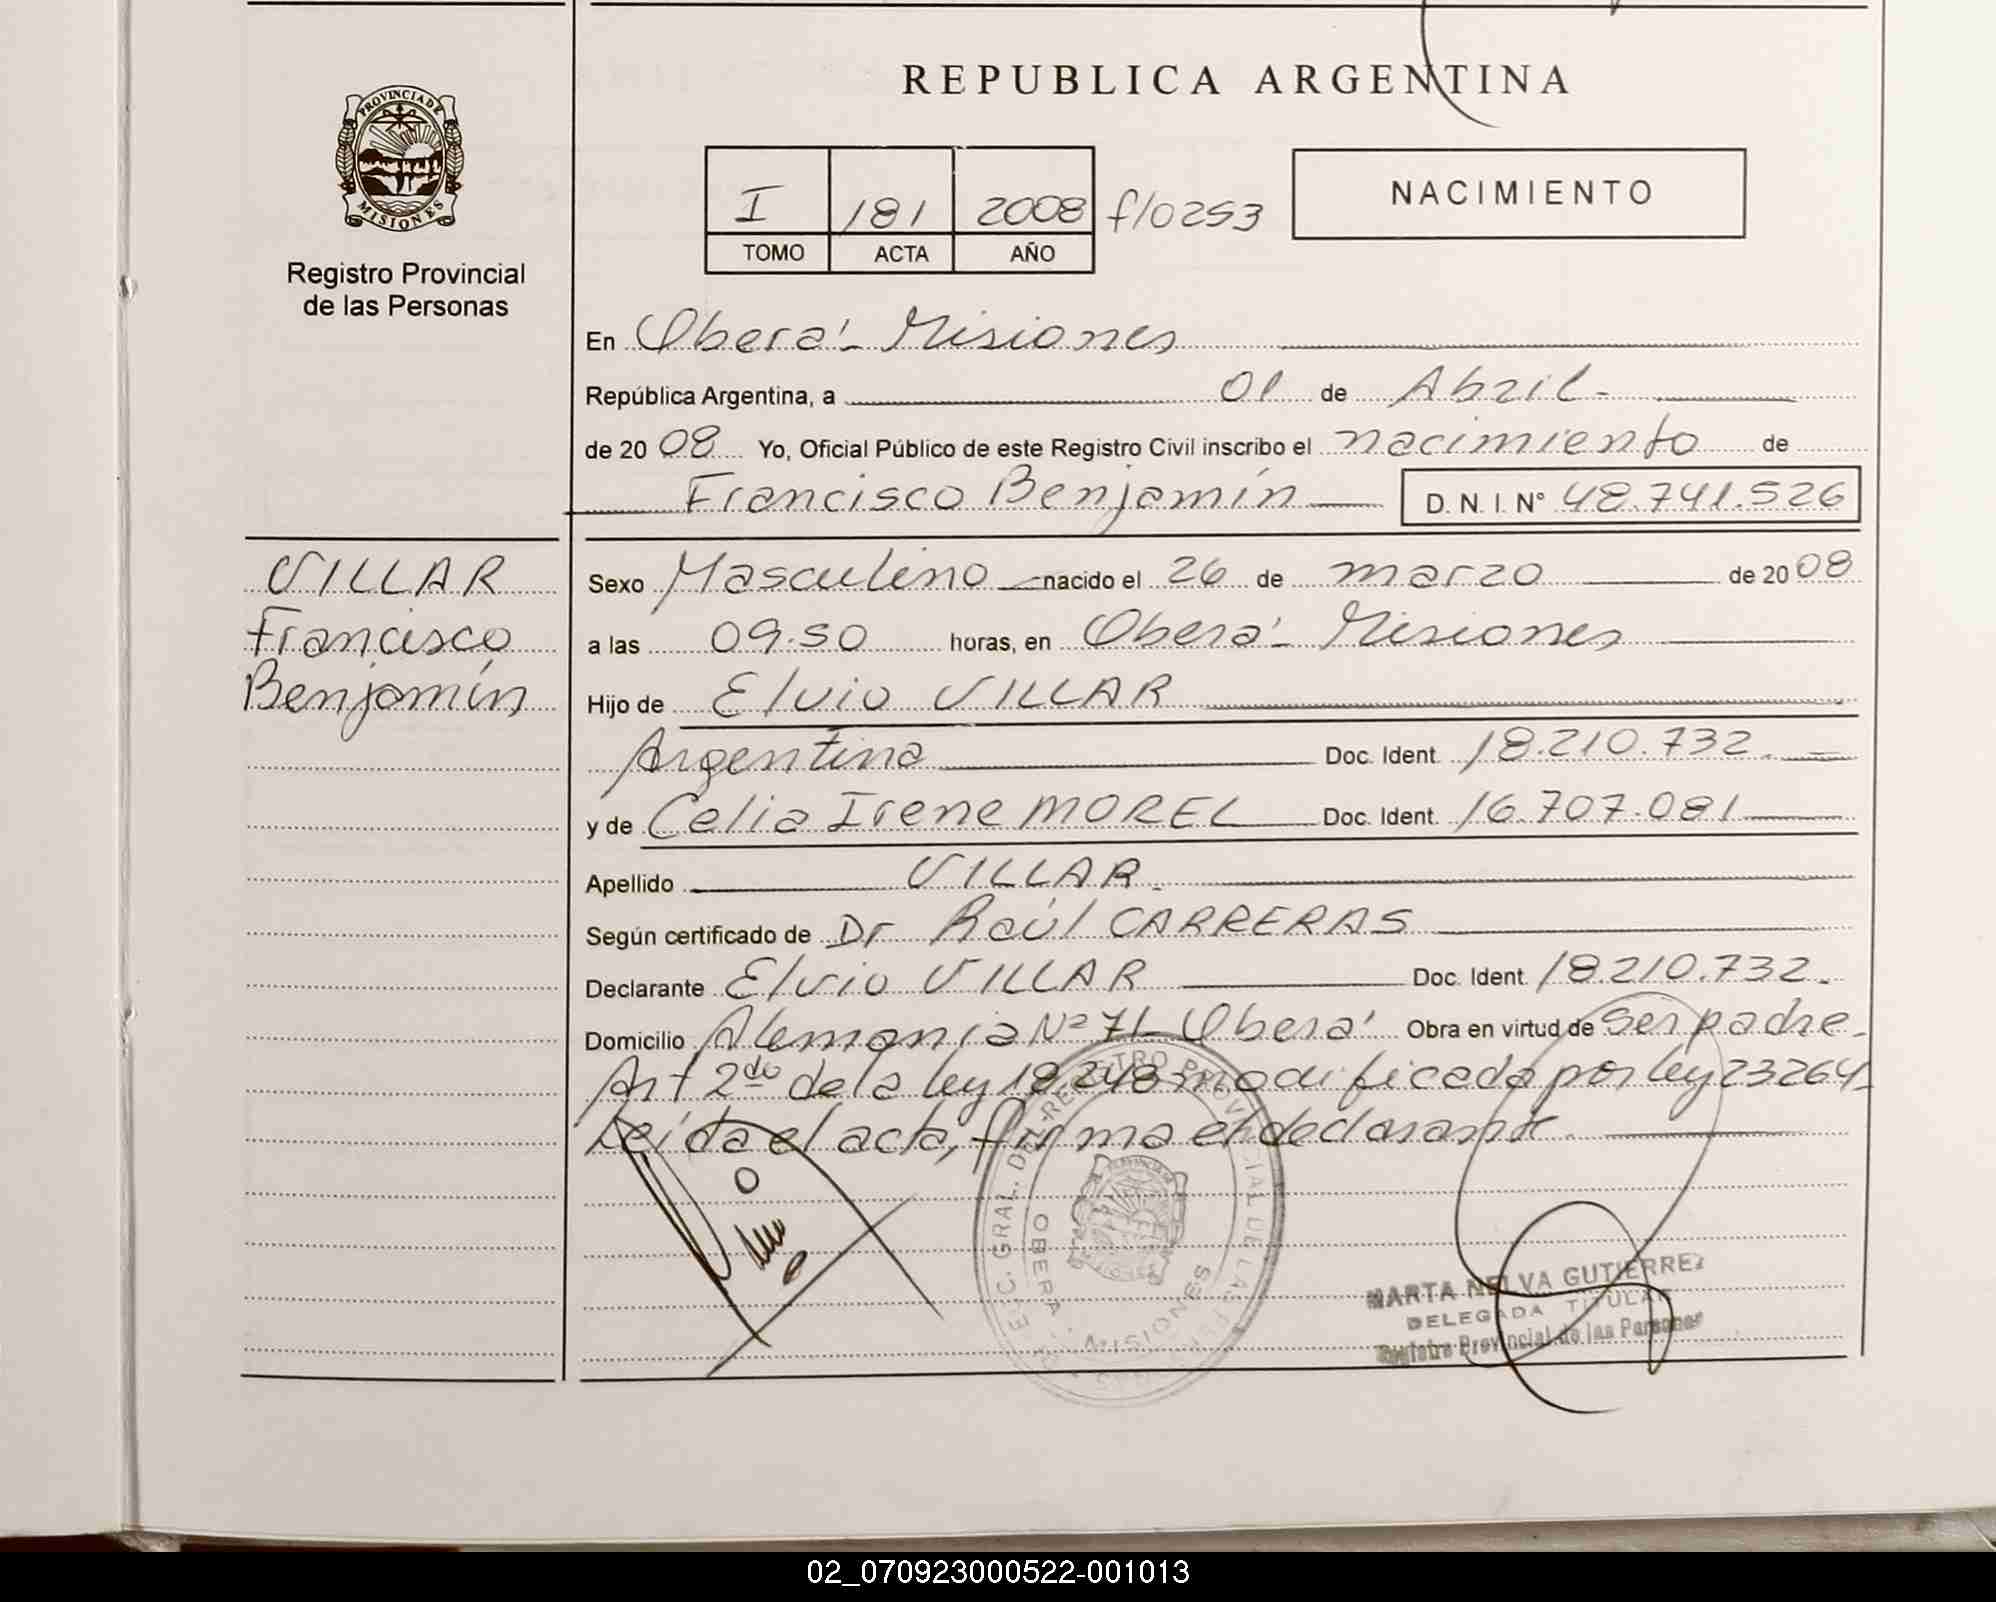 REPUBLICA ARGENTINA
PROVINCIA DE
MISIONES
Registro Provincial
de las Personas
I 181 2008 f/0253
TOMO ACTA AÑO
NACIMIENTO
En Oberá - Misiones
República Argentina, a 01 de Abril -
de 20 08 Yo, Oficial Público de este Registro Civil inscribo el nacimiento de
Francisco Benjamín D. N. I. N° 48.741.526
VILLAR
Francisco
Benjamín
Sexo Masculino nacido el 26 de marzo de 20 08
a las 09.50 horas, en Oberá - Misiones
Hijo de Elvio VILLAR
Argentina Doc. Ident. 18.210.732. 
y de Celia Irene MOREL Doc. Ident. 16.707.081
Apellido VILLAR.
Según certificado de Dr Raúl CARRERAS
Declarante Elvio VILLAR Doc. Ident. 18.210.732.
Domicilio Alemania Nº 71 - Oberá Obra en virtud de ser padre.
Art 2do de la ley 18.248 modificada por ley 23264 -
Leída el acta, firma el declarante.
REGISTRO PROVINCIAL DE LAS
OBERA - MISIONES
MARTA NELVA GUTIERREZ
DELEGADA TITULAR
Registro Provincial de las Personas
02_070923000522-001013